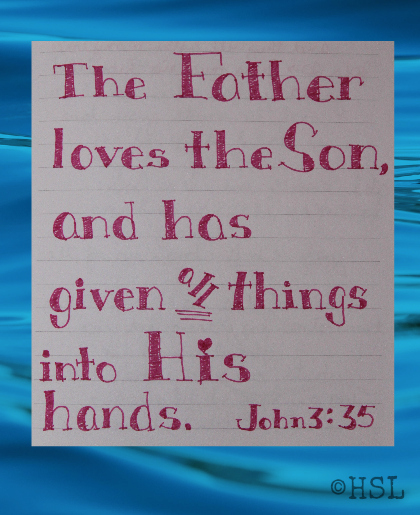 The Father
loves the Son,
and has
given all things
into His
hands. John 3:35
©HSL